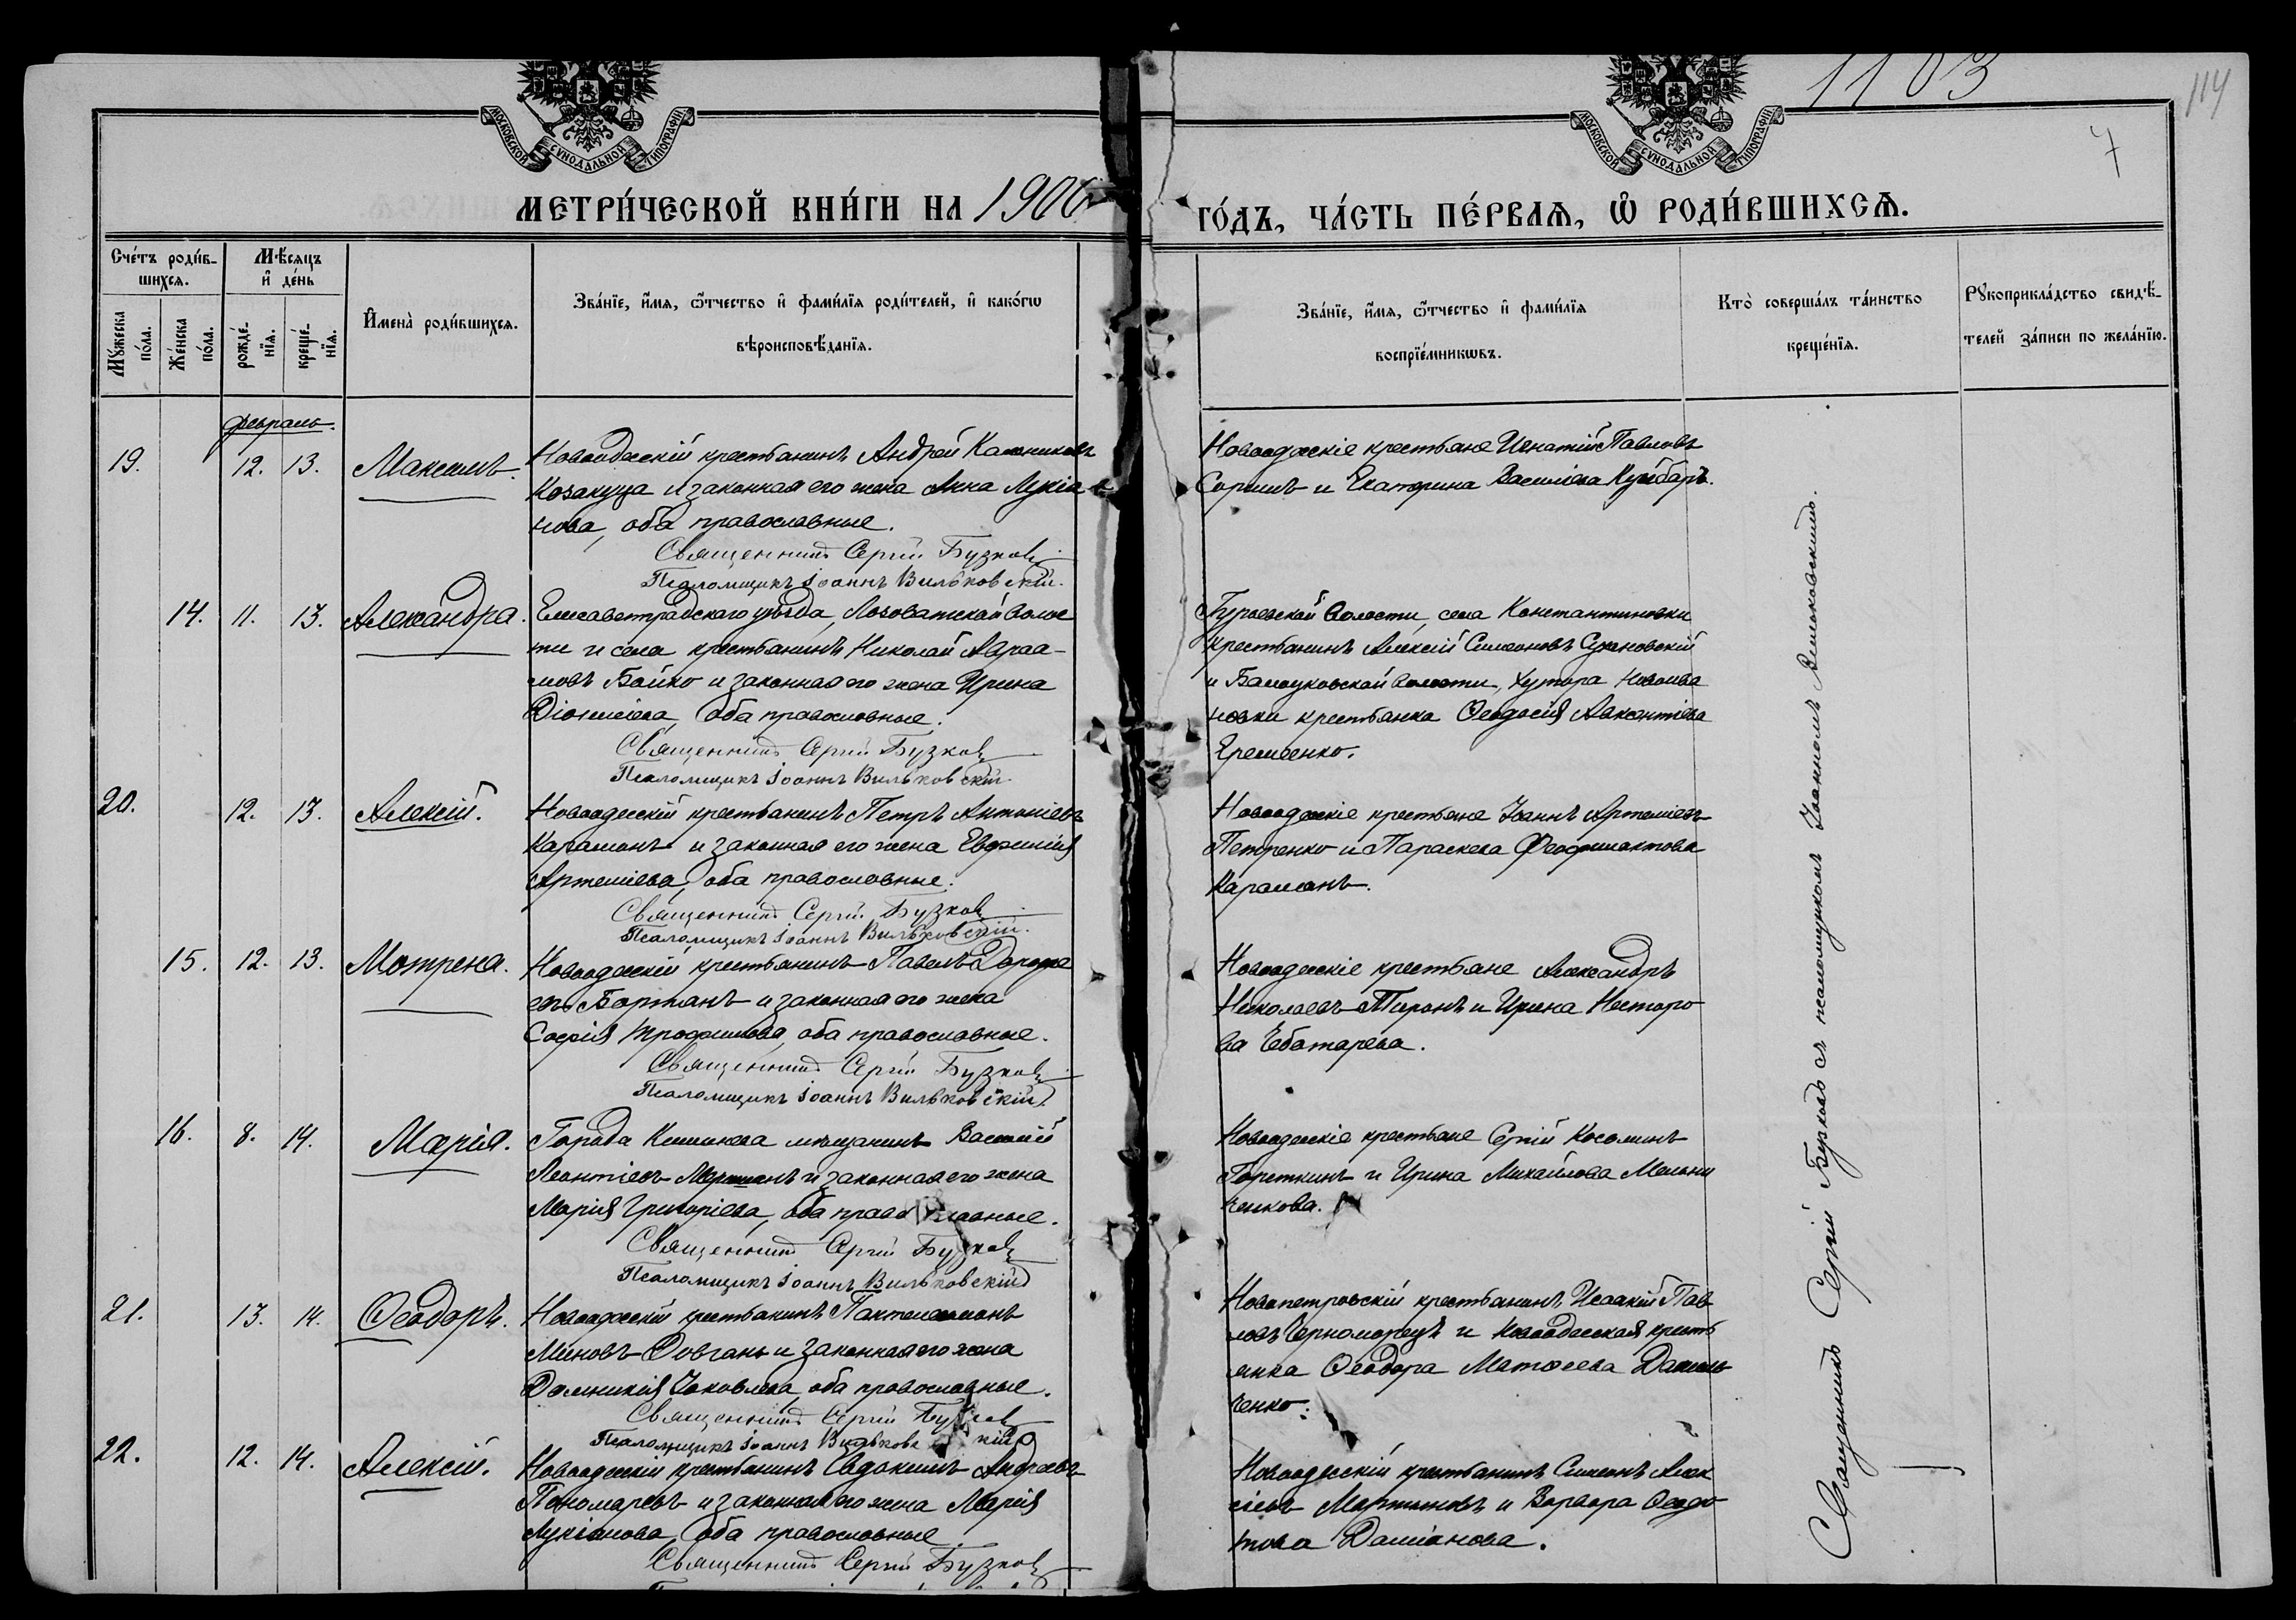 1103
114
7
МОСКОВСКОЙ СѴНОДАЛЬНОЙ ТИПОГРАФІИ
МОСКОВСКОЙ СѴНОДАЛЬНОЙ ТИПОГРАФІИ
МЕТРИ́ЧЕСКОЙ КНИ́ГИ НА 1906
ГО́ДЪ, ЧА́СТЬ ПЕ́РВАѦ, Ѽ РОДИ́ВШИХСѦ.
Сче́тъ роди́в-
шихсѧ.
Мѣ́сѧцъ
и҆ де́нь
Мꙋ́жеска по́ла.
Же́нска по́ла.
рожде́-нїѧ.
креще́-нїѧ.
И҆мена̀ роди́вшихсѧ.
Зва́нїе, и҆́мѧ, ѿ́чество и҆ фами́лїѧ роди́телей, и҆ како́гѡ
вѣроисповѣ́данїѧ.
Зва́нїе, и҆́мѧ, ѿ́чество и҆ фами́лїѧ
воспрїе́мникѡвъ.
Кто̀ соверша́лъ та́инство
креще́нїѧ.
Рꙋкоприкла́дство свидѣ́-
телей за́писи по жела́нїю.
Февраль.
19. 12. 13. Максимъ.
Новоодесскій крестьанинъ Андрей Калениковъ
Козакуца и законная его жена Анна Лукіа
нова, оба православные.
Священникъ Сергій Бузковъ
Псаломщикъ Іоаннъ Вильковскій.
Новоодесскіе крестьане Игнатій Павловъ
и Екатерина Василіева
14. 11. 13. Александра.
Елисаветградскаго уѣзда, Лозоватской волос
ти и села крестьанинъ Николай Авраа-
мовъ Бойко и законная его жена Ирина
Діонисіева, оба православные.
Священникъ Сергій Бузковъ
Псаломщикъ Іоаннъ Вильковскій.
Гурьевской волости, села Константиновки
крестьанинъ Алексій Симеоновъ Сухановскій
и волости, хутора Новоива
новки крестьанка Ѳеодосія Авксентіева
Еременко.
20. 12. 13. Алексій.
Новоодесскій крестьанинъ Петръ Антоніевъ
Караманъ и законная его жена Евфимія
Артеміева, оба православные.
Священникъ Сергій Бузковъ
Псаломщикъ Іоаннъ Вильковскій.
Новоодесскіе крестьане Іоаннъ Артеміевъ
Петренко и Параскева Феофилактова
Караманъ.
15. 12. 13. Мотрена.
Новоодесскій крестьанинъ Павелъ Дороѳе
евъ Бортанъ и законная его жена
Софія Трофимова, оба православные.
Священникъ Сергій Бузковъ
Псаломщикъ Іоаннъ Вильковскій.
Новоодесскіе крестьане Александръ
Николаевъ Тиронъ и Ирина Несторо
ва Чеботарева.
16. 8. 14. Марія.
Города Кишинева мѣщанинъ Василій
Леонтіевъ и законная его жена
Марія Григоріева, оба православные.
Священникъ Сергій Бузковъ
Псаломщикъ Іоаннъ Вильковскій
Новоодесскіе крестьане Сергій Косминъ
Гореткинъ и Ирина Михайлова Мельни
ченкова.
21. 13. 14. Ѳеодоръ.
Новоодесскій крестьанинъ Пантелеимонъ
Миновъ Довгань и законная его жена
Домникія Іаковлева, оба православные.
Священникъ Сергій Бузковъ
Псаломщикъ Іоаннъ Вильковскій
Новопетровскій крестьанинъ Исаакій Пав
ловъ Черноморецъ и Новоодесская кресть
анка Ѳеодора Матѳеева Даниль
ченко.
22. 12. 14. Алексій.
Новоодесскій крестьанинъ Евдокимъ Андреевъ
Пономаревъ и законная его жена Марія
Лукіанова, оба православные
Священникъ Сергій Бузковъ
Новоодесскій крестьанинъ Симеонъ Алек
сіевъ Мартыновъ и Варвара Ѳеодо
това Даміанова.
Священникъ Сергій Бузковъ съ псаломщикомъ Іоанномъ Вильковскимъ.